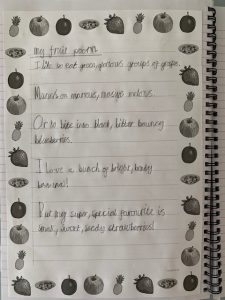 my fruit poem
I like to eat green, glorious groups of grapes.
Munch on marvellous, melons.
Or to bite into black, bitter
blueberries.
I love a bunch of bright, bendy
bananas!
But my super, special favourite is
small, sweet, seedy strawberries!